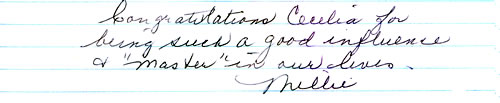 Congratulations Cecelia for
being such a good influence
& "Master" in our lives.
Millie